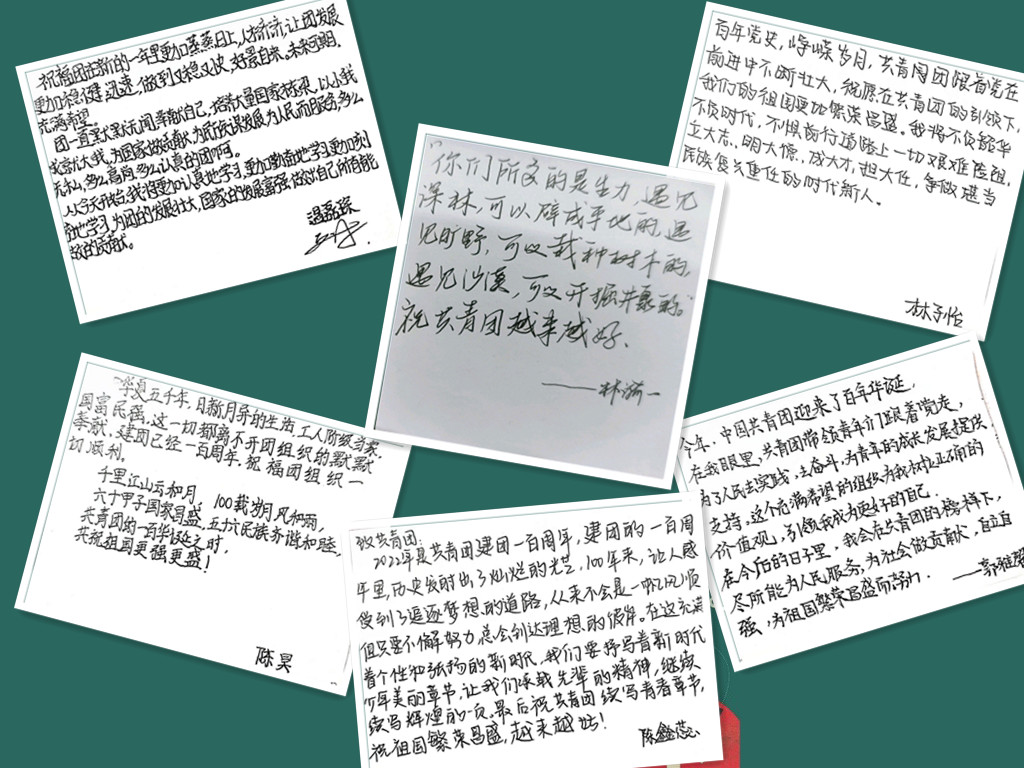 祝福团在新的一年里更加蒸蒸日上,人才济济,让团发展
更加稳健迅速,做到又稳又快,好景自来。未来可期。
充满希望。
团一直默默无闻,奉献自己,培养大量国家栋梁,以小我
成就大我,为国家做贡献,为民族谋发展,为人民而服务,多么
无私,多么高尚,多么认真的团啊。
从今天开始,我将更加认真地学习,更加勤奋地学习,更加刻
苦地学习,为团的发展壮大,国家的发展富强,做出自己所有能
做的贡献。
温磊
百年党史,峥嵘岁月,共青团团跟着党在
前进中不断壮大,我愿在共青团的引领下,
我们的祖国更加繁荣昌盛。我将不负韶华
不负时代,不惧前行道路上一切艰难险阻,
立大志、明大德、成大才,担大任,争做堪当
民族复兴重任的时代新人。
林子怡
“你们所多的是生力,遇见
深林,可以辟成平地的,遇
见旷野,可以栽种树木的,
遇见沙漠,可以开掘井泉的。”
祝共青团越来越好.
——林漪一
华夏五千年,日新月异的生活,工人阶级当家,
国富民强,这一切都离不开团组织的默默
奉献,建团已经一百周年,祝福团组织一
切顺利。
千里江山云和月,100载岁月风和雨,
六十甲子国家昌盛,五十六民族齐谐和睦,
共青团的一百华诞之时,
共祝祖国更强更盛!
陈昊
今年,中国共青团迎来了百年华诞,
在我眼里,共青团带领青年们跟着党走,
为了人民去实践,去奋斗,为青年的成长发展提供
支持,这个充满希望的组织为我树立正确的
价值观,引领我成为更好的自己.
在今后的日子里,我会在共青团的榜样下,
尽所能为人民服务,为社会做贡献,自立自
强,为祖国繁荣昌盛而努力.
——郭
致共青团:
2022年是共青团建团一百周年,建团的一百周
年里,历史发射出了灿烂的光芒,100年来,让人感
受到了追逐梦想的道路,从来不会是一帆风顺
但只要不懈努力总会到达理想的彼岸。在这充满
着个性和张扬的新时代,我们要抒写着新时代
少年美丽章节,让我们承载先辈的精神,继续
续写辉煌的一页。最后祝共青团续写青春章节,
祝祖国繁荣昌盛,越来越好!
陈鑫蕊